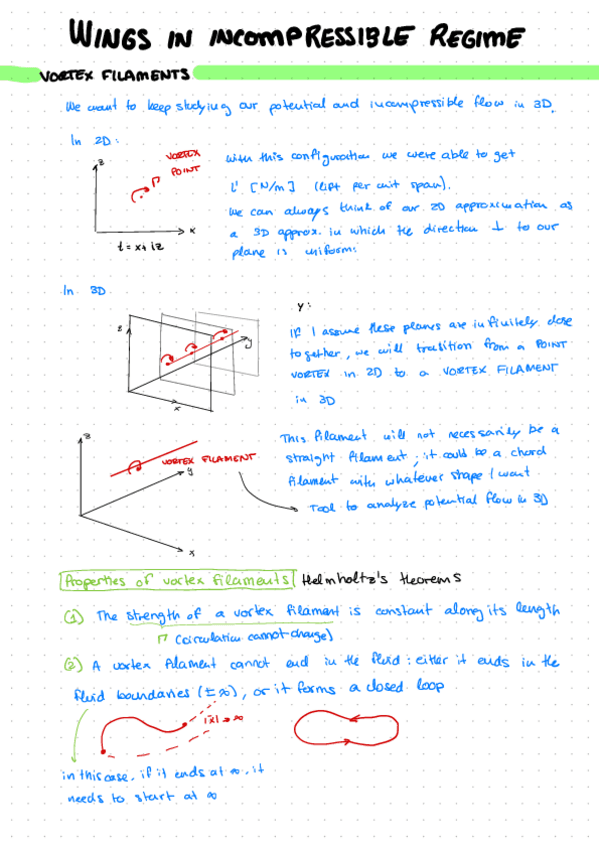 WINGS IN INCOMPRESSIBLE REGIME
VORTEX FILAMENTS
We want to keep studying our potential and incompressible flow in 3D.
In 2D:
z
VORTEX
POINT
Γ
x
t = x + iz
With this configuration we were able to get
L' [N/m] (lift per unit span).
We can always think of our 2D approximation as
a 3D approx. in which the direction ⊥ to our
plane is uniform:
In 3D
z
y
x
y:
If I assume these planes are infinitely close
together, we will transition from a POINT
VORTEX in 2D to a VORTEX FILAMENT
in 3D
z
VORTEX FILAMENT
y
x
This filament will not necessarily be a
straight filament; it could be a
filament with whatever shape I want
Tool to analyze potential flow in 3D
Properties of vortex filaments Helmholtz's theorems
① The strength of a vortex filament is constant along its length
Γ (circulation cannot change)
② A vortex filament cannot end in the fluid: either it ends in the
fluid boundaries (±∞), or it forms a closed loop
|x| → ∞
in this case, if it ends at ∞, it
needs to start at ∞